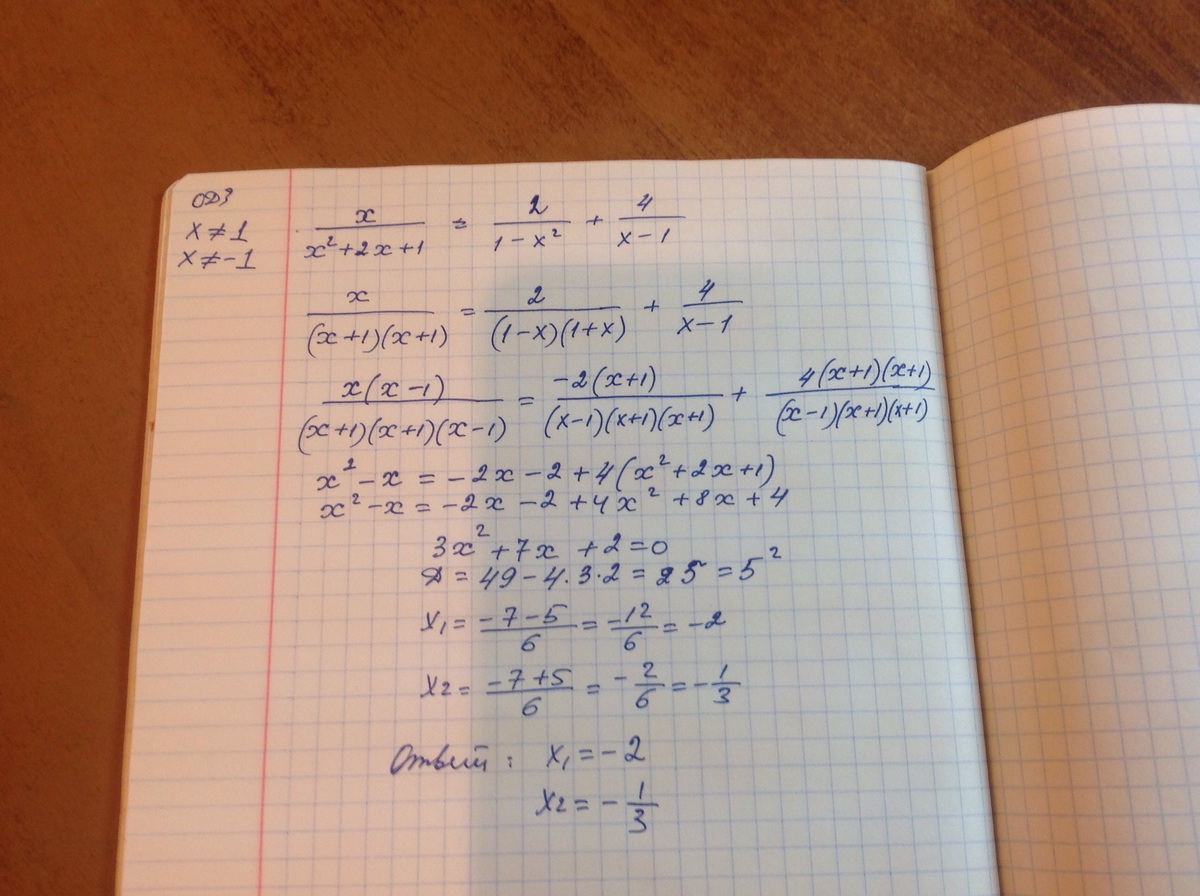 ОДЗ
x ≠ 1
x ≠ -1
x/(x²+2x+1) = 2/(1-x²) + 4/(x-1)
x/((x+1)(x+1)) = 2/((1-x)(1+x)) + 4/(x-1)
x(x-1)/((x+1)(x+1)(x-1)) = -2(x+1)/((x-1)(x+1)(x+1)) + 4(x+1)(x+1)/((x-1)(x+1)(x+1))
x² - x = -2x - 2 + 4(x² + 2x + 1)
x² - x = -2x - 2 + 4x² + 8x + 4
3x² + 7x + 2 = 0
D = 49 - 4·3·2 = 25 = 5²
x₁ = (-7-5)/6 = -12/6 = -2
x₂ = (-7+5)/6 = -2/6 = -1/3
Ответ: x₁ = -2
x₂ = -1/3